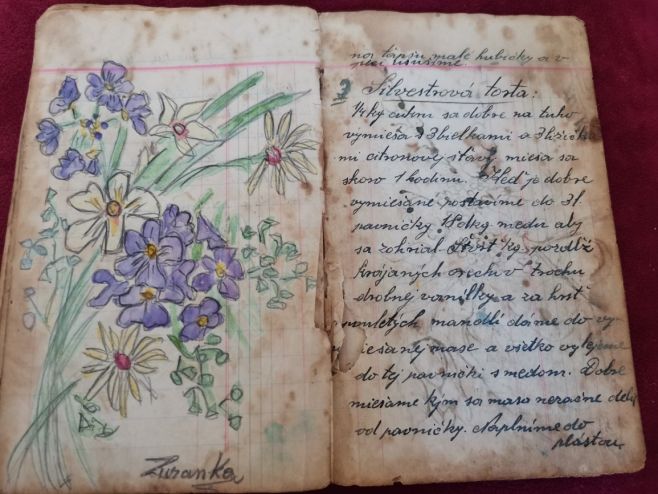 Zuzanka
na tápsiu malé kubičky a v
peci usušíme.
3 Silvestrová torta:
1/4 kg cukru sa dobre na tuho
vymieša s 3 bielkami a 3 lžička
mi citronovej šťavy miesa sa
skoro 1 hodinu. Keď je dobre
vymiesané postavíme do 3 l.
panvičky 1/2 kg medu aby
sa zohrial. Štvrt kg pozdĺž
krájaných orechov trochu
drobnej vanilky a za hrsť
mandlí dáme do vy
miesanej mase a všetko vylejeme
do tej panvički s medom. Dobre
miesame kým sa masa nezačne deliť
od panvičky. Naplníme do
plastou